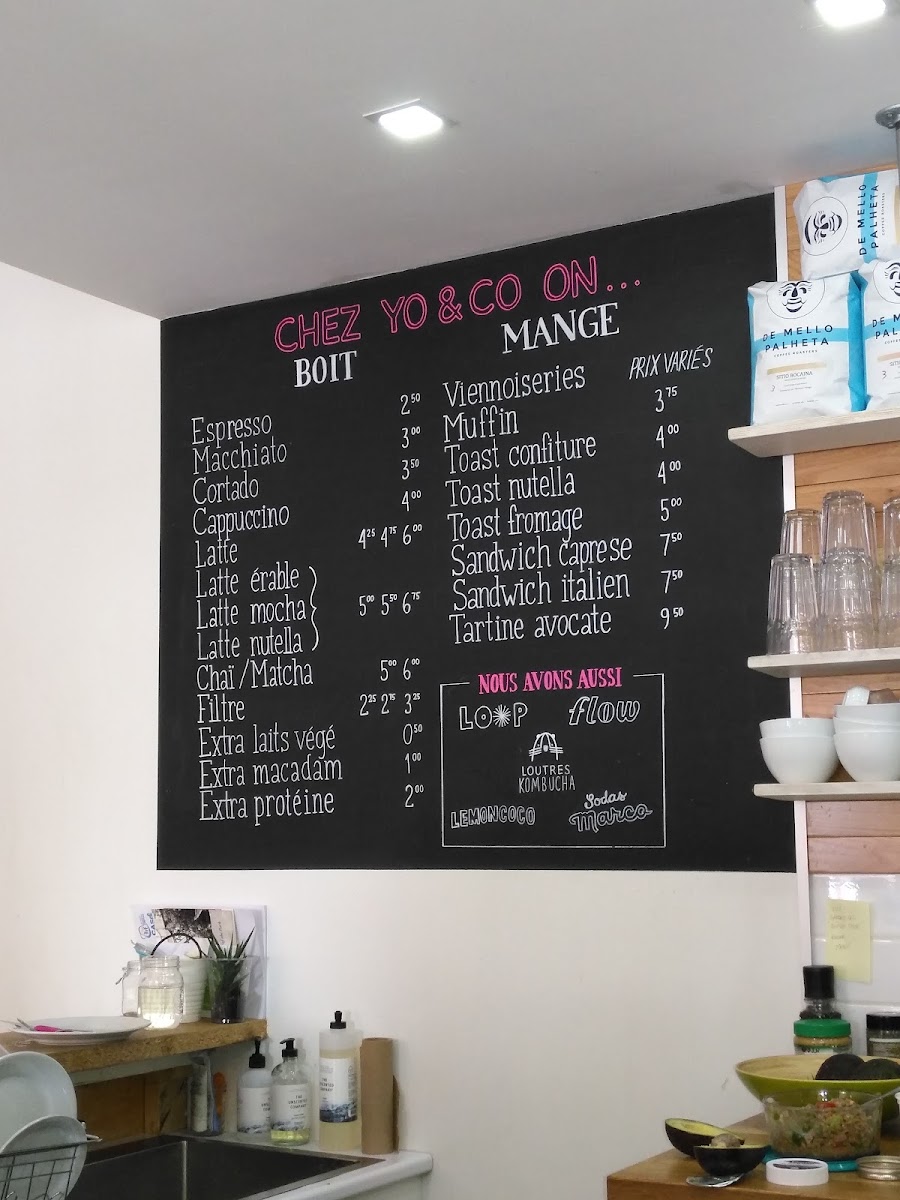 CHEZ YO & CO ON...
BOIT
Espresso 2⁵⁰
Macchiato 3⁰⁰
Cortado 3⁵⁰
Cappuccino 4⁰⁰
Latte 4²⁵ 4⁷⁵ 6⁰⁰
Latte érable
Latte mocha } 5⁰⁰ 5⁵⁰ 6⁷⁵
Latte nutella
Chaï / Matcha 5⁰⁰ 6⁰⁰
Filtre 2²⁵ 2⁷⁵ 3²⁵
Extra laits végé 0⁵⁰
Extra macadam 1⁰⁰
Extra protéine 2⁰⁰
MANGE
Viennoiseries PRIX VARIÉS
Muffin 3⁷⁵
Toast confiture 4⁰⁰
Toast nutella 4⁰⁰
Toast fromage 5⁰⁰
Sandwich caprese 7⁵⁰
Sandwich italien 7⁵⁰
Tartine avocate 9⁵⁰
NOUS AVONS AUSSI
LOOP
flow
LOUTRES
KOMBUCHA
LEMONCOCO
Sodas
Marco
DE MELLO
PALHETA
COFFEE ROASTERS
DE MELLO
PALHETA
COFFEE ROASTERS
DE M
PALH